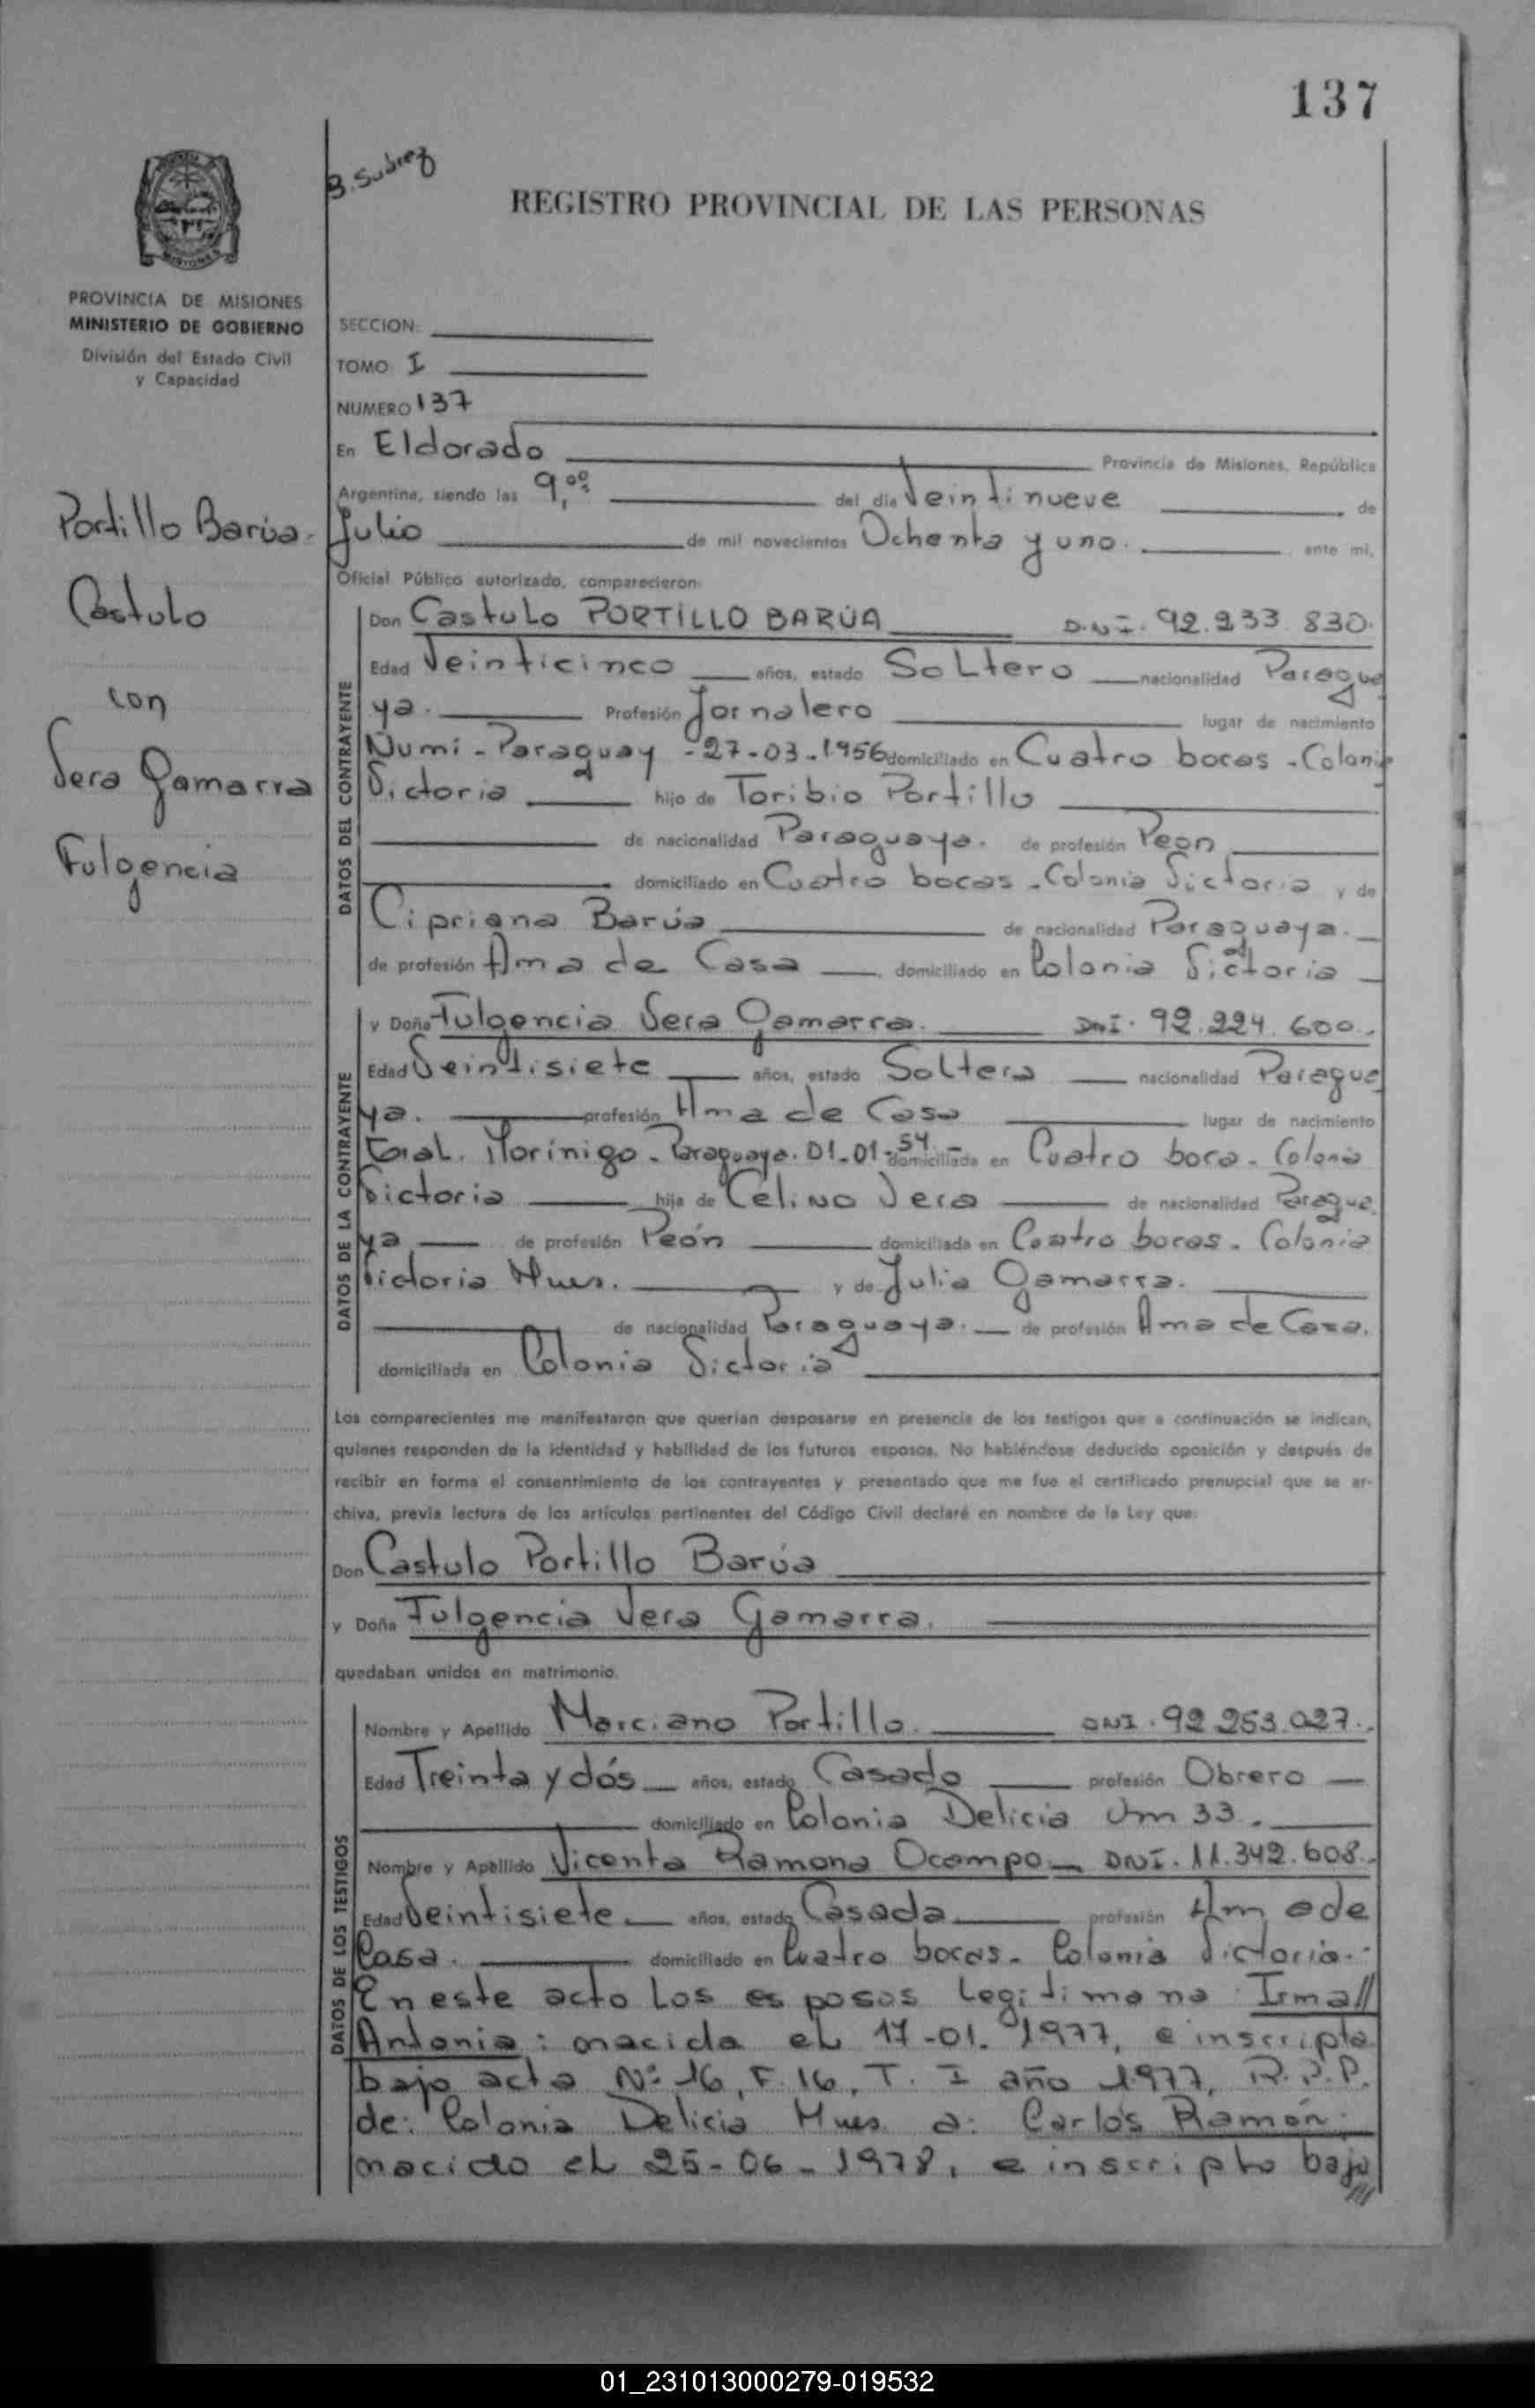 137
B. Suárez
REGISTRO PROVINCIAL DE LAS PERSONAS
MISIONES
PROVINCIA DE MISIONES
MINISTERIO DE GOBIERNO
División del Estado Civil
y Capacidad
SECCION:
TOMO I
NUMERO 137
En Eldorado Provincia de Misiones, República
Argentina, siendo las 9,00 del día Veintinueve de
Julio de mil novecientos Ochenta y uno. ante mi,
Oficial Público autorizado, comparecieron:
Portillo Barúa
Castulo
con
Vera Gamarra
Fulgencia
DATOS DEL CONTRAYENTE
Don Castulo PORTILLO BARÚA D.N.I. 92.233.830.
Edad Veinticinco años, estado Soltero nacionalidad Paragua
ya. Profesión Jornalero lugar de nacimiento
Numi - Paraguay - 27-03-1956 domiciliado en Cuatro bocas - Colonia
Victoria hijo de Toribio Portillo
de nacionalidad Paraguaya. de profesión Peon
domiciliado en Cuatro bocas - Colonia Victoria y de
Cipriana Barúa de nacionalidad Paraguaya.
de profesión Ama de Casa domiciliado en Colonia Victoria
DATOS DE LA CONTRAYENTE
y Doña Fulgencia Vera Gamarra. DNI. 92.224.600.
Edad Veintisiete años, estado Soltera nacionalidad Paragua
ya. profesión Ama de Casa lugar de nacimiento
Gral. Morínigo - Paraguaya. 01-01-54 domiciliada en Cuatro boca - Colonia
Victoria hija de Celino Vera de nacionalidad Paragua
ya de profesión Peón domiciliada en Cuatro bocas - Colonia
Victoria Mnes. y de Julia Gamarra.
de nacionalidad Paraguaya. de profesión Ama de Casa.
domiciliada en Colonia Victoria
Los comparecientes me manifestaron que querían desposarse en presencia de los testigos que a continuación se indican,
quienes responden de la identidad y habilidad de los futuros esposos. No habiéndose deducido oposición y después de
recibir en forma el consentimiento de los contrayentes y presentado que me fue el certificado prenupcial que se ar-
chiva, previa lectura de los artículos pertinentes del Código Civil declaré en nombre de la Ley que:
Don Castulo Portillo Barúa
y Doña Fulgencia Vera Gamarra.
quedaban unidos en matrimonio.
DATOS DE LOS TESTIGOS
Nombre y Apellido Marciano Portillo. DNI. 92.253.027.
Edad Treinta y dós años, estado Casado profesión Obrero
domiciliado en Colonia Delicia Km 33.
Nombre y Apellido Vicenta Ramona Ocampo DNI. 11.342.608.
Edad Veintisiete años, estado Casada profesión Ama de
Casa. domiciliado en Cuatro bocas - Colonia Victoria.
En este acto los esposos legitiman a Irma //
Antonia: nacida el 17-01-1977, e inscripta
bajo acta Nº 16, F. 16, T. I año 1977, R.P.P.
de: Colonia Delicia Mnes. a: Carlos Ramón:
nacido el 25-06-1978, e inscripto bajo
///
01_231013000279-019532